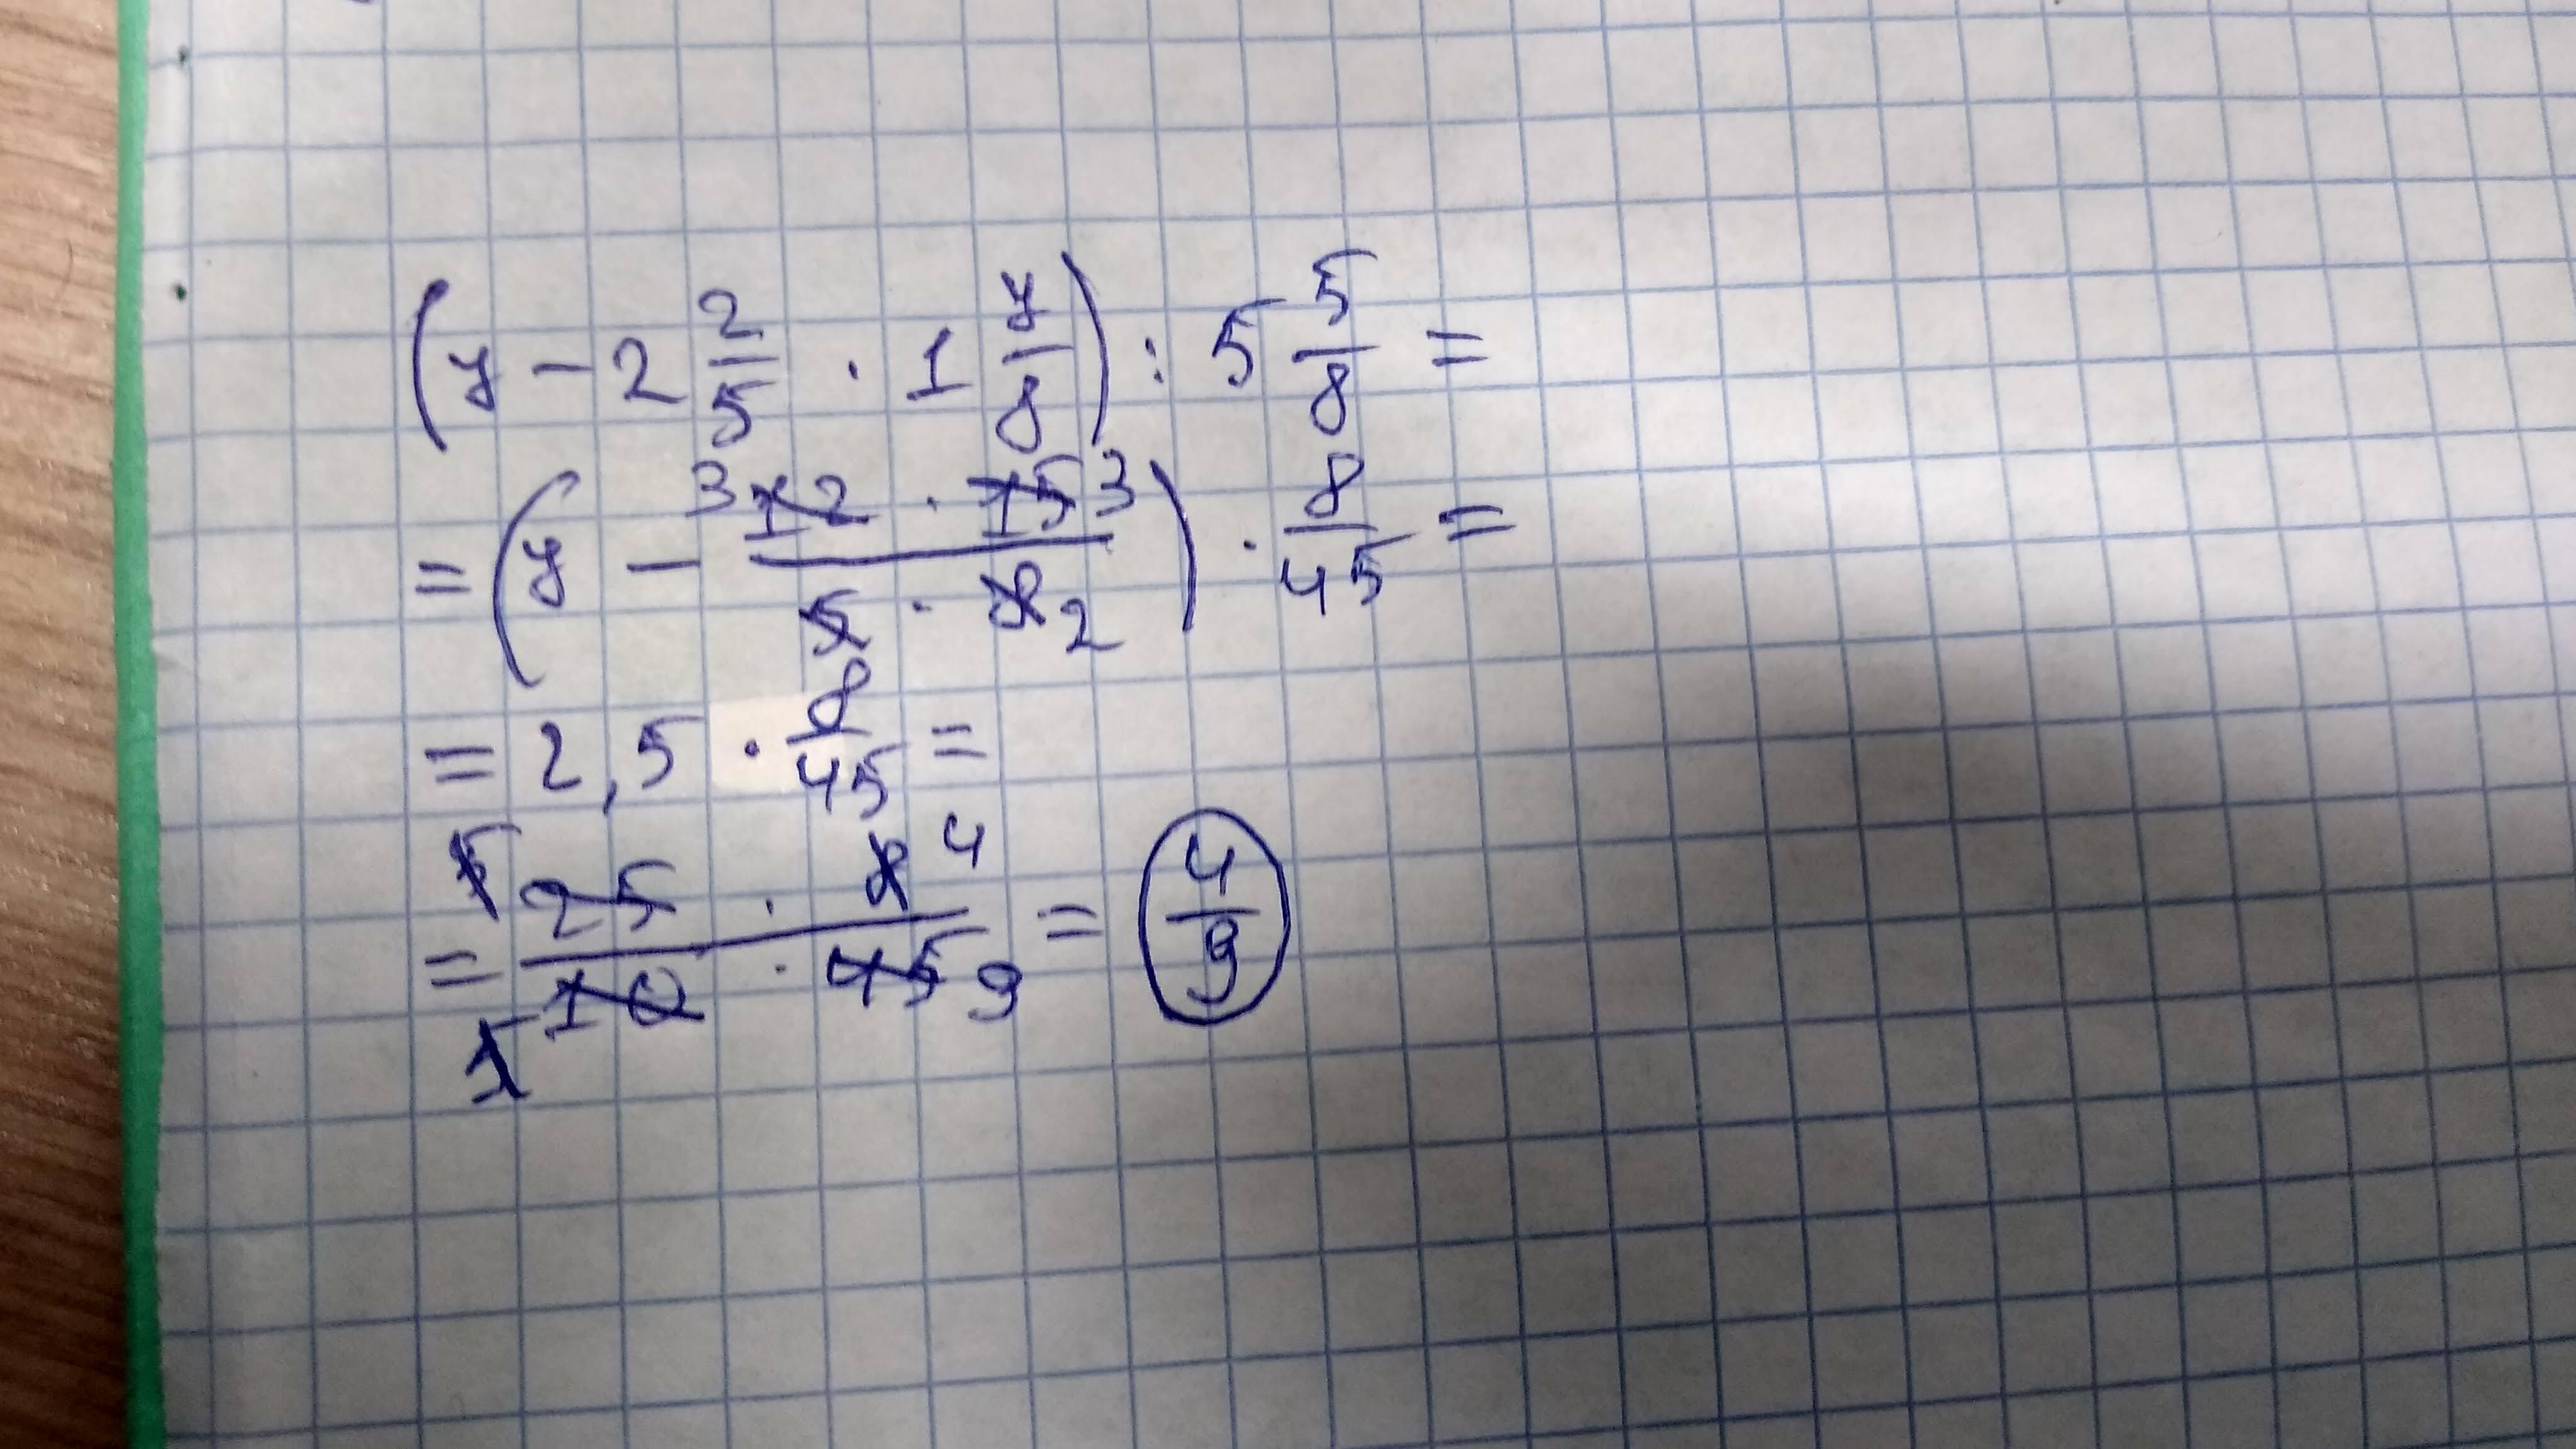 (7 - 2 2/5 · 1 7/8) : 5 5/8 =
= (7 - 3 12 · 15 3 / 5 · 8 2) · 8/45 =
= 2,5 · 8/45 =
= 5 25 · 8 4 / 5 10 · 45 9 = 4/9
1